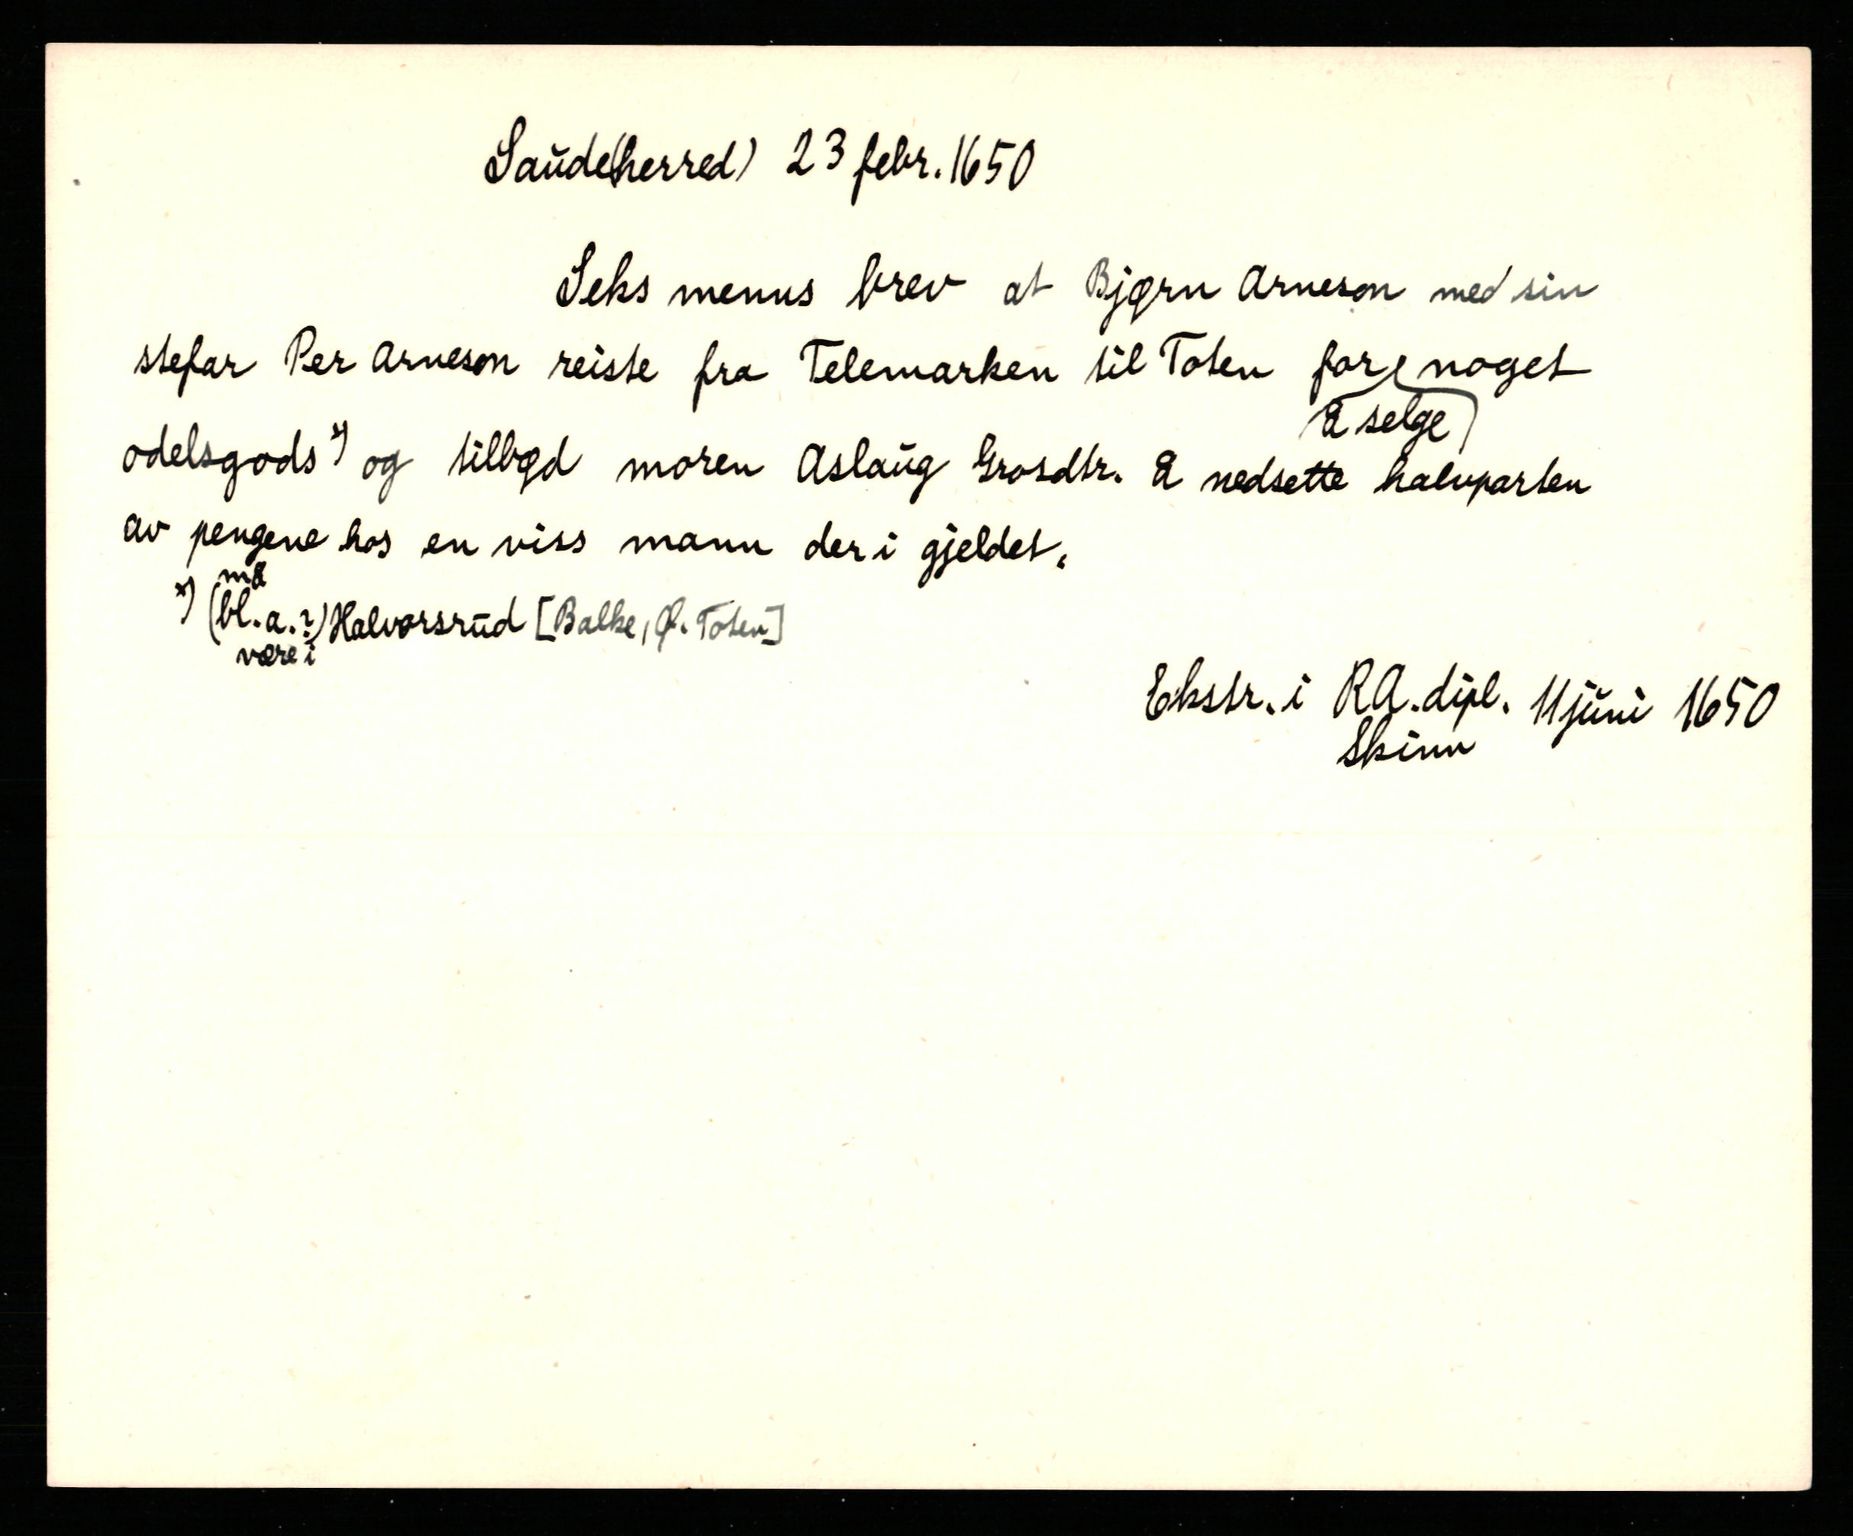 Saude(herred) 23 febr. 1650
Seks menns brev at Bjørn Arneson med sin
stefar Per Arneson reiste fra Telemarken til Toten for noget
å selge
odelsgods *) og tilbød moren Aslaug Grosdtr. å nedsette halvparten
av pengene hos en viss mann der i gjeldet.
må
*) (bl. a.?) Halvorsrud [Balke, Ø. Toten]
være i
Ekstr. i RA. dipl. 11 juni 1650
Skinn